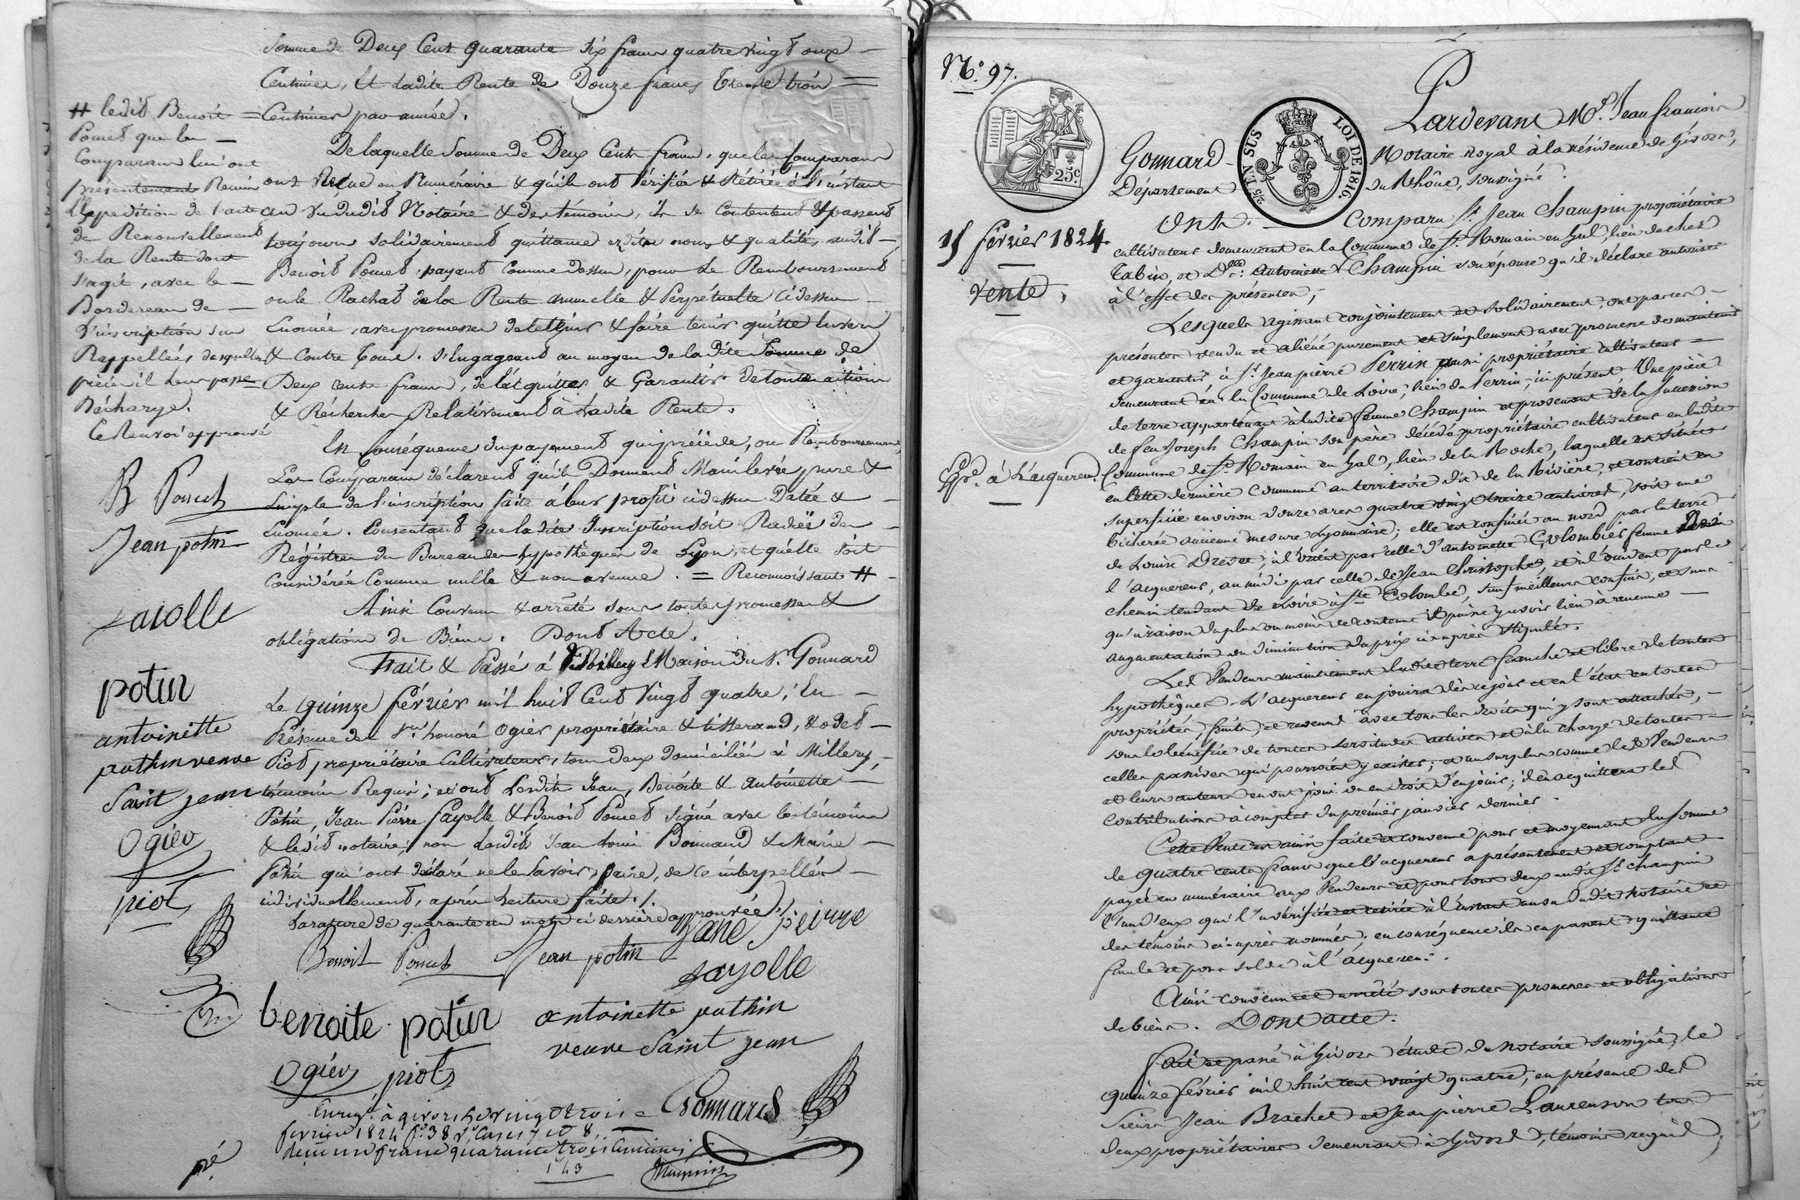 Somme de Deux Cent quarante Six francs quatre vingt onze
Centimes, Et Ladite Rente de Douze francs trente trois
Centimes par année.
De laquelle Somme de Deux Cents francs, que les Comparans
ont Reçue en Numéraire & qu'ils ont Vérifiée & Retirée à l'instant
au vu dudit Notaire & des témoins, ils se Contentent & passent
toujours solidairement quittance esdits noms & qualités audit
Benoît Poncet, payant Comme dessus, pour le Remboursement
ou le Rachat de la Rente annuelle & Perpétuelle cidessus
Enoncée, avec promesse de tenir & faire tenir quitte Envers
& Contre tous. S'Engageant au moyen de ladite Somme de
Deux cents francs, de l'acquitter & Garantir de toute action
& Recherches Relativement à Ladite Rente.
En Conséquence du payement qui précède, ou Remboursement,
Les Comparans déclarent qu'ils Donnent Mainlevée pure &
Simple de l'inscription faite à leur profit cidessus Datée &
Enoncée. Consentant que ladite Inscription soit Radiée des
Régistres du Bureau des hypothèques de Lyon, et qu'elle soit
Considérée Comme nulle & non avenue. = Reconnoissant #
Ainsi Convenu & arrêté sous toutes promesses &
obligations de Biens. Dont Acte.
Fait & Passé à Millery Maison du Sr Gonnard
Le quinze février mil huit Cent vingt quatre, En
Présence de Sr honoré Ogier propriétaire & tisserand, & de
Piot propriétaire Cultivateur, tous deux domiciliés à Millery,
témoins Requis; et ont Lesdits Jean, Benoite & Antoinette
Potin, Jean Pierre fayolle & Benoit Poncet signé avec les témoins
& ledit notaire; non Lesdits Jean Bonnard & Marie
Potin qui ont déclaré ne le savoir faire, de ce interpellés
individuellement, après lecture faite./.
La rature de quarante un mots ci derrière approuvée./.
# ledit Benoit
Poncet que les
Comparans lui ont
présentement Remis
l'Expédition de l'acte
de Renouvellement
de la Rente dont
s'agit, avec le
Bordereau de
l'inscription sus
Rappellées desquelles
pièces il leur passe
Décharge.
Ce Renvoi approuvé
B Poncet
Jean potin
fayolle
potin
antoinette
pothin veuve
Saint jean
Ogier
piot
Benoit Poncet
Jean potin
fayolle
benoite potin
antoinette pothin
veuve Saint jean
Ogier
piot
Gonnard
Enregt. à givors le vingt trois
fevrier 1824 fo 38 Vo Cases 7 et 8,
deux francs quarante trois centimes
N.o 97.
25 EN SUS
LOI DE 1816.
25c
Pardevant Me. Jean francois
Gonnard Notaire royal à la résidence de Givors,
Département du Rhône, soussigné.
15 février 1824.
Vente,
Ont Comparu Sr. Jean Champin propriétaire
cultivateur demeurant en la Commune de St. Romain en Gal, lieu de chez
Tabin, et De. Antoinette Champin son épouse qu'il déclare autoriser
à l'effet des présentes;
Lesquels agissant conjointement et solidairement, ont par ces
présentes vendu et aliéné purement et simplement avec promesse de maintenir
et garantir à Sr. Jean pierre Perrin aussi propriétaire cultivateur
demeurant en la Commune de Loire, lieu du Perrin, ici présent Une pièce
de terre appartenant à ladite femme Champin et provenant de la succession
de feu Joseph Champin son père décédé propriétaire cultivateur en ladite
Exp.n à l'acquéreur
Commune de St. Romain en Gal, lieu de la Roche, laquelle est située
en cette dernière commune au territoire dit de la Rivière, et contient en
superficie environ douze ares quatre vingt treize centiares, soit une
bicherée ancienne mesure Lyonnaise; elle est confinée au nord par la terre
de Louis Drevet, à l'orient par celle d'antoinette Colombier femme
l'acquéreur, au midi par celle de Jean Christophe, et à l'occident par le
chemin tendant de Loire à Ste. Colombe, sauf meilleurs confins, et sans
qu'à raison du plus ou moins de contenue il puisse y avoir lieu à aucune
augmentation ou diminution du prix ci-après stipulé.
Les Vendeurs maintiennent ladite terre franche et libre de toutes
hypothèques. L'acquéreur en jouira dès ce jour et en l'état en toutes
propriétés, fruits et revenus avec tous les droits qui y sont attachés,
sous le bénéfice de toutes servitudes actives et à la charge de toutes
celles passives qui pourroient y exister; et au surplus comme les Vendeurs
et leurs auteurs en ont joui ou eu droit d'en jouir; il en acquittera les
contributions à compter du premier janvier dernier.
Cette Vente est ainsi faite et convenue pour et moyennant la somme
de quatre cents francs que l'acquéreur a présentement et comptant
payée en numéraire aux Vendeurs et pour tous deux audit Sr. champin
l'un d'eux qui l'a vérifiée et retirée à l'instant au vu dudit Notaire et
des témoins ci-après nommés; en conséquence ils en passent quittance
finale et pour solde à l'acquéreur.
Ainsi convenu et arrêté sous toutes promesses et obligations
de biens. Dont acte.
Fait et passé à Givors étude du Notaire soussigné, le
quinze février mil huit cent vingt quatre, en présence des
Sieurs Jean Brachet et Jean pierre Laurenson tous
deux propriétaires demeurant à Givors, témoins requis,